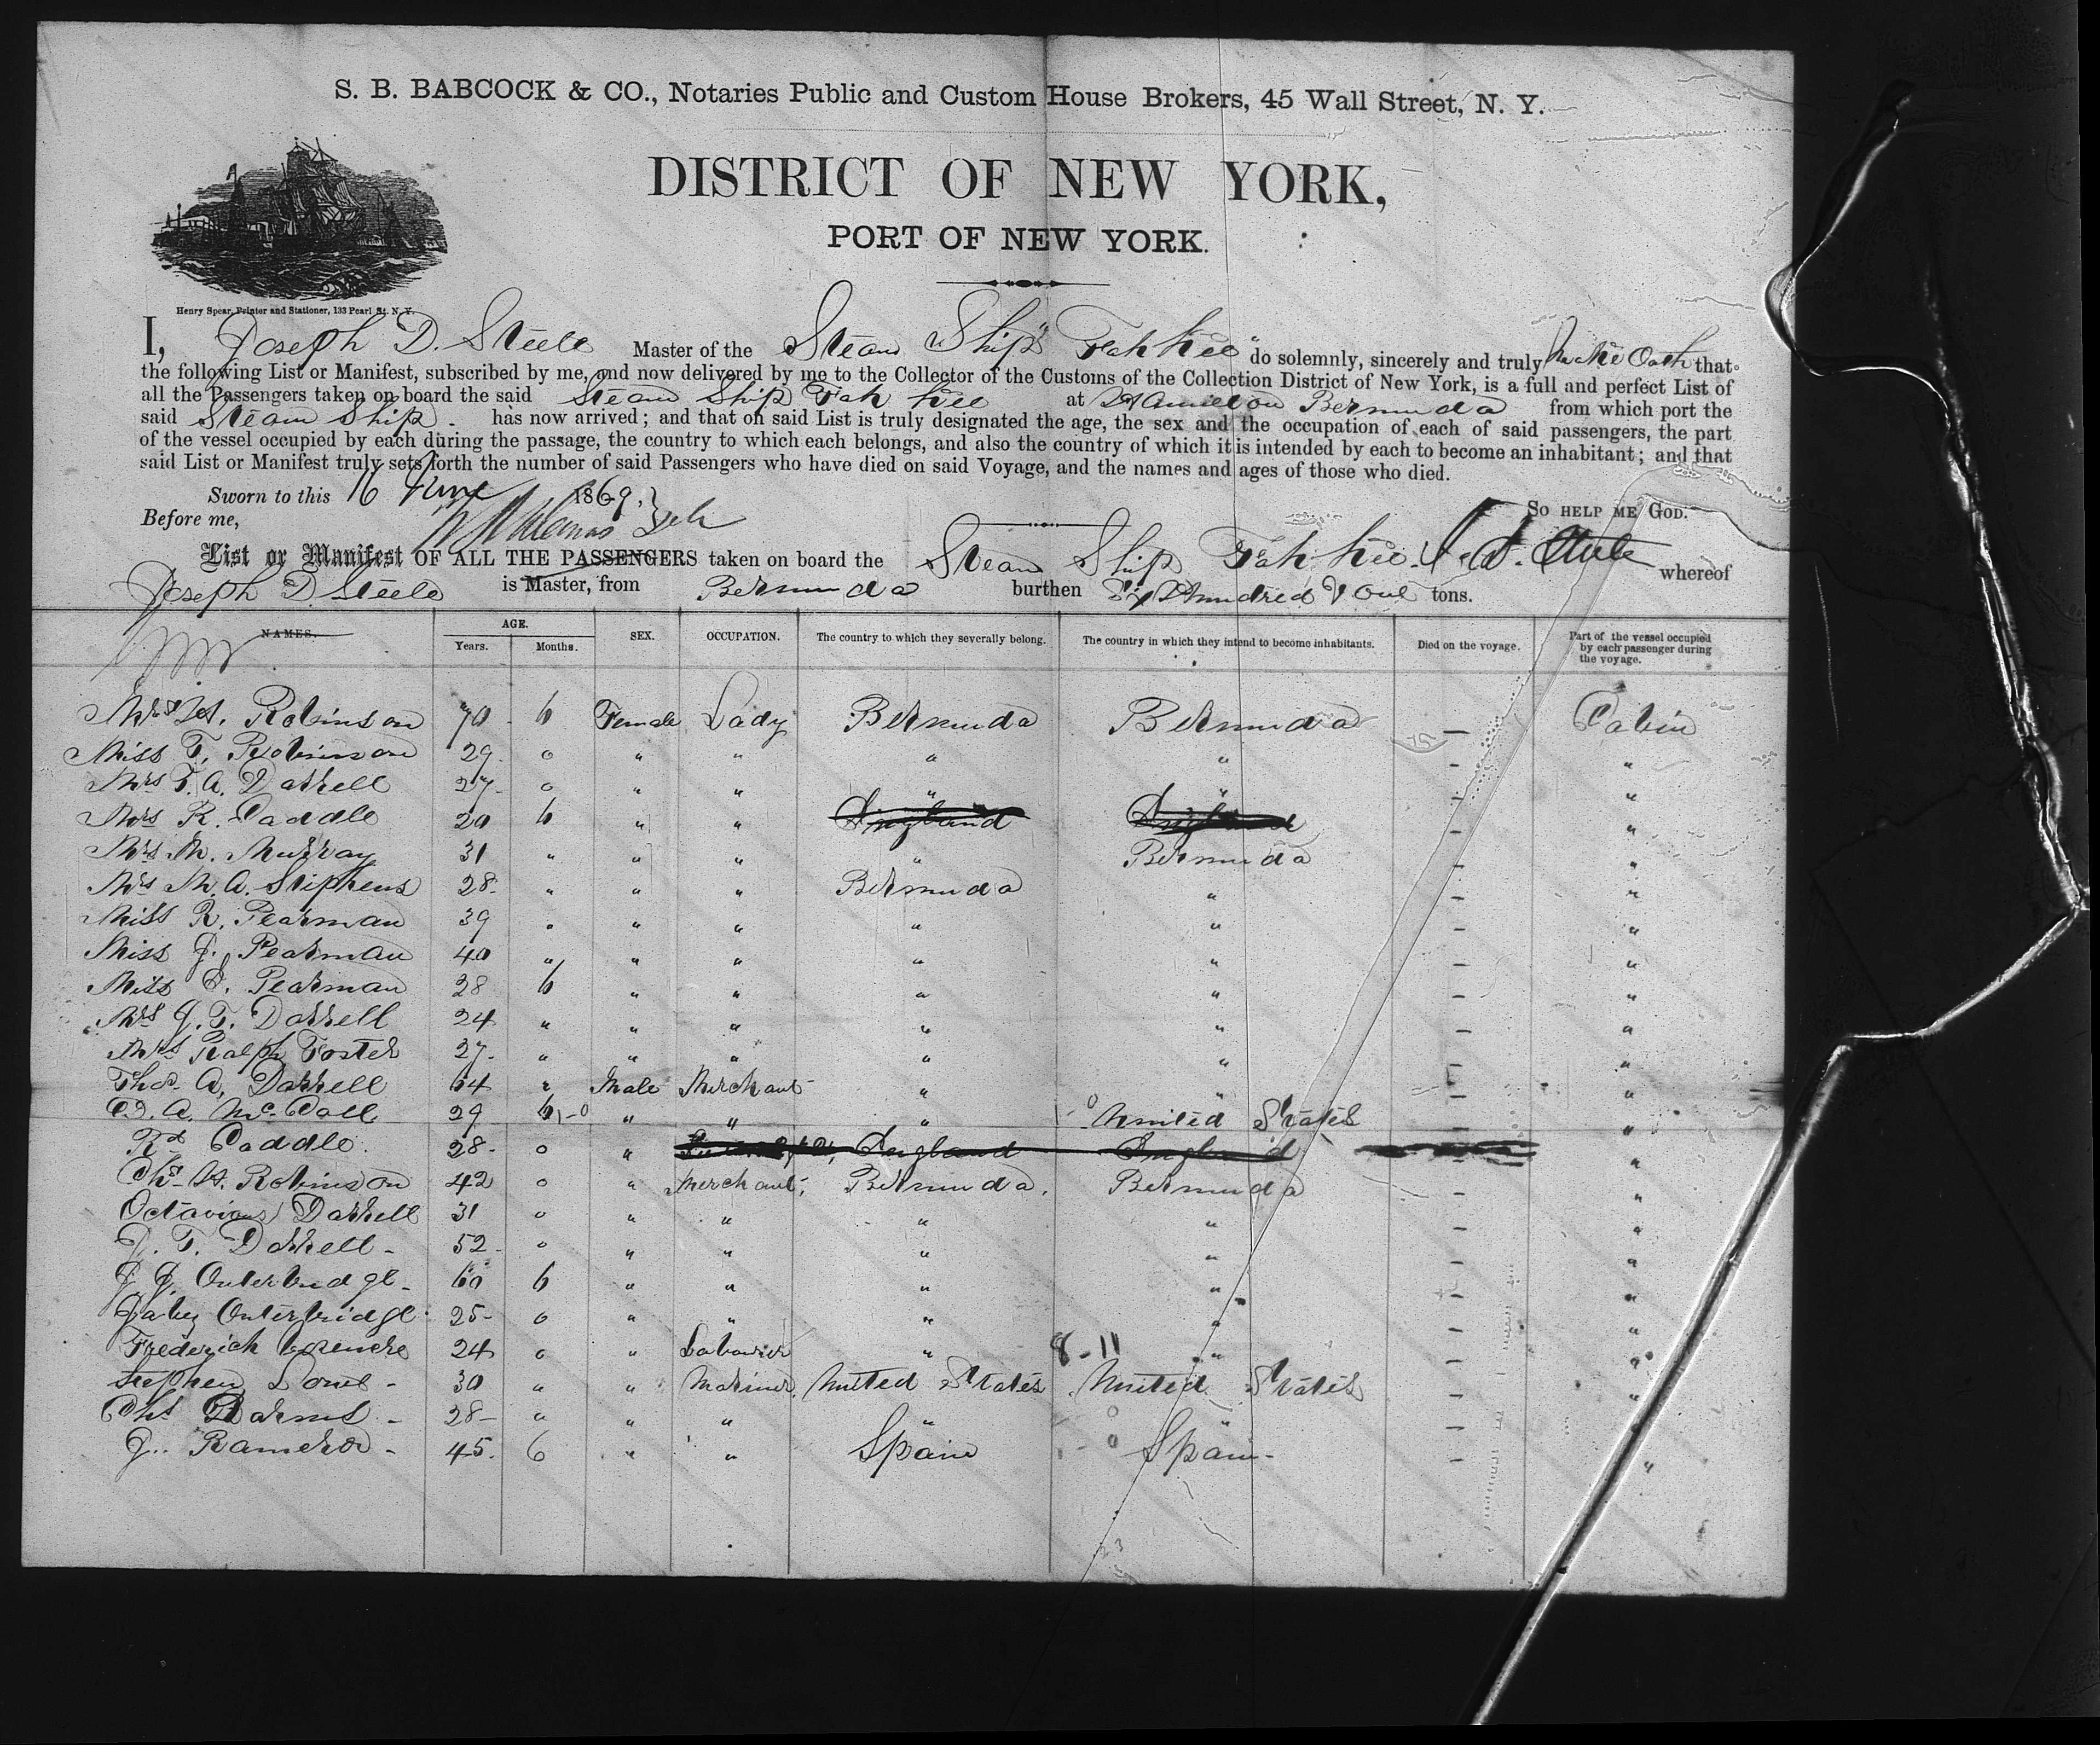 S. B. BABCOCK & CO., Notaries Public and Custom House Brokers, 45 Wall Street, N. Y.
DISTRICT OF NEW YORK,
PORT OF NEW YORK.
Henry Spear, Printer and Stationer, 133 Pearl St. N. Y.
I, Joseph D. Steele Master of the Steam Ship "Fah Kee" do solemnly, sincerely and truly make Oath that
the following List or Manifest, subscribed by me, and now delivered by me to the Collector of the Customs of the Collection District of New York, is a full and perfect List of
all the Passengers taken on board the said Steam Ship Fah Kee at Hamilton Bermuda from which port the
said Steam Ship. has now arrived; and that on said List is truly designated the age, the sex and the occupation of each of said passengers, the part
of the vessel occupied by each during the passage, the country to which each belongs, and also the country of which it is intended by each to become an inhabitant; and that
said List or Manifest truly sets forth the number of said Passengers who have died on said Voyage, and the names and ages of those who died.
Sworn to this 16 June 1869.
SO HELP ME GOD.
Before me,
List or Manifest OF ALL THE PASSENGERS taken on board the Steam Ship Fah Kee. J. D. Steele whereof
Joseph D. Steele is Master, from Bermuda burthen Six Hundred & One tons.
NAMES. AGE. Years. Months. SEX. OCCUPATION. The country to which they severally belong. The country in which they intend to become inhabitants. Died on the voyage. Part of the vessel occupied by each passenger during the voyage.
Robinson 70 6 Female Lady Bermuda Bermuda — Cabin
Miss F. Robinson 29 0 " " " " - "
Mrs T. A. Darrell 27 0 " " " " - "
Mrs R. Caddle 20 6 " " England England - "
Mrs M. Murray 31 " " " " Bermuda - "
Mrs M A. Stephens 28 " " " Bermuda " - "
Miss R. Pearman 39 " " " " " - "
Miss J. Pearman 40 " " " " " - "
Miss Pearman 28 6 " " " " - "
Mrs J. T. Darrell 24 " " " " " - "
Mrs Ralph Foster 27 " " " " " - "
Thos. A. Darrell 64 " Male Merchant " " - "
A. McCall 29 6 1-0 " " " 1-0 United States - "
Rd Caddle. 28 0 " England England "
Chs H. Robinson 42 0 " Merchant, Bermuda. Bermuda - "
Octavious Darrell 31 0 " " " " - "
J. T. Darrell - 52 0 " " " " - "
J. J. Outerbridge - 60 6 " " " " - "
Jabez Outerbridge 25 0 " " " " - "
Frederick 24 0 " Labourer " 8-11 " - "
Stephen 30 " " Mariner, United States United States - "
Chs - 28 " " " " " - "
J. - 45. 6 " " Spain - 0 Spain - - "